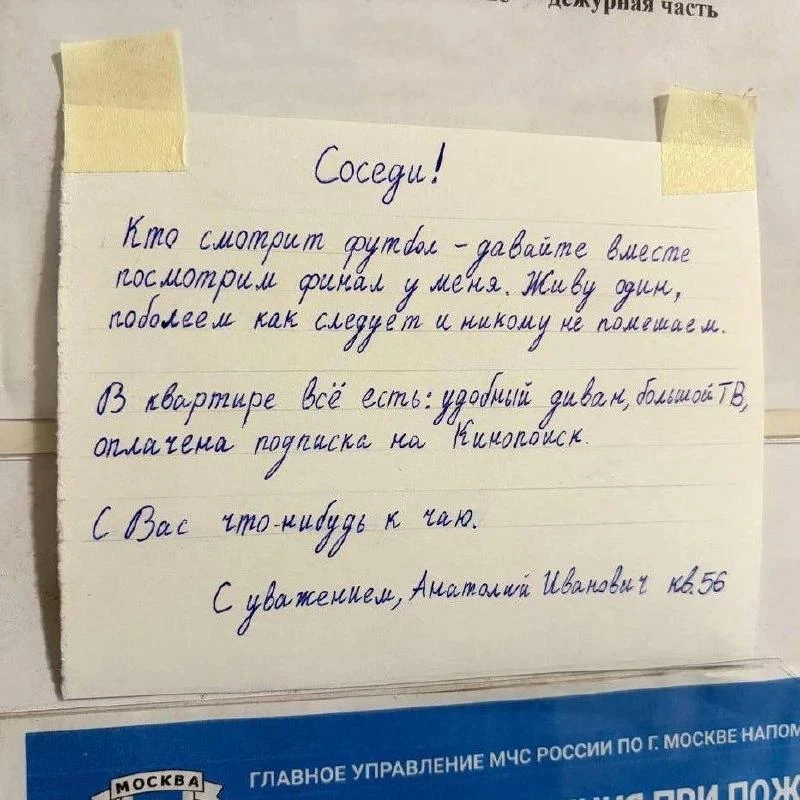 дежурная часть
Соседи!
Кто смотрит футбол - давайте вместе
посмотрим финал у меня. Живу один,
поболеем как следует и никому не помешаем.
В квартире всё есть: удобный диван, большой ТВ,
оплачена подписка на Кинопоиск.
С Вас что-нибудь к чаю.
С уважением, Анатолий Иванович кв.56
МОСКВА
ГЛАВНОЕ УПРАВЛЕНИЕ МЧС РОССИИ ПО Г. МОСКВЕ
ПРИ